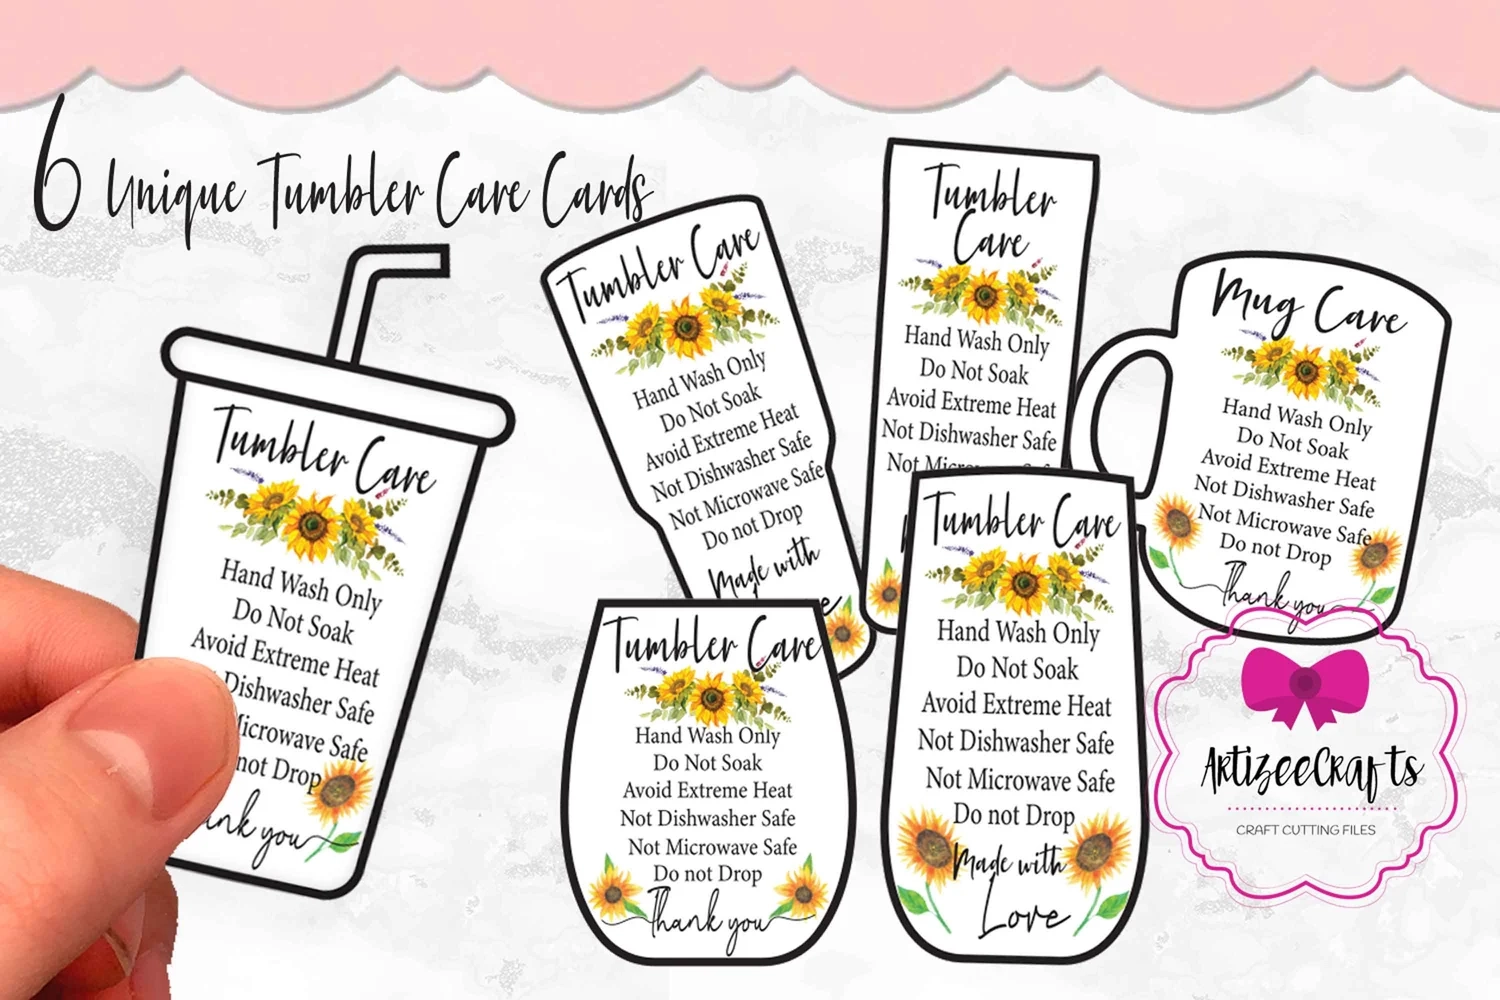 6 Unique Tumbler Care Cards
Tumbler Care
Hand Wash Only
Do Not Soak
Avoid Extreme Heat
Dishwasher Safe
Microwave Safe
not Drop
you
Tumbler Care
Hand Wash Only
Do Not Soak
Avoid Extreme Heat
Not Dishwasher Safe
Not Microwave Safe
Do not Drop
Made with
Tumbler
Care
Hand Wash Only
Do Not Soak
Avoid Extreme Heat
Not Dishwasher Safe
Not
Mug Care
Hand Wash Only
Do Not Soak
Avoid Extreme Heat
Not Dishwasher Safe
Not Microwave Safe
Do not Drop
Thank you
Tumbler Care
Hand Wash Only
Do Not Soak
Avoid Extreme Heat
Not Dishwasher Safe
Not Microwave Safe
Do not Drop
Thank you
Tumbler Care
Hand Wash Only
Do Not Soak
Avoid Extreme Heat
Not Dishwasher Safe
Not Microwave Safe
Do not Drop
Made with
Love
ArtizeeCrafts
CRAFT CUTTING FILES